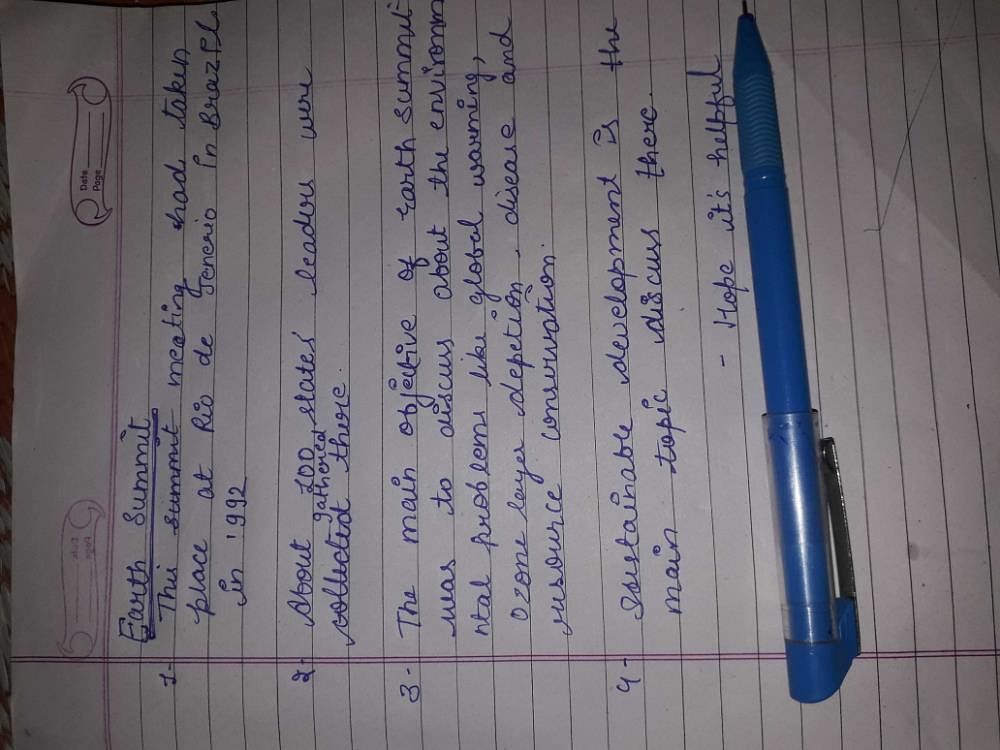 Date
Page
Earth Summit
1- This summit meating had taken
place at Rio de Jenerio in Brazil
in 1992
2- About 200 states leaders were
gathered
collected there.
3- The main objective of earth summit
was to discus about the environm
ntal problems like global warming,
Ozone layer depetion, disease and
resource conservation.
4- Sustainable development is the
main topic discuss there.
- Hope it's helpful